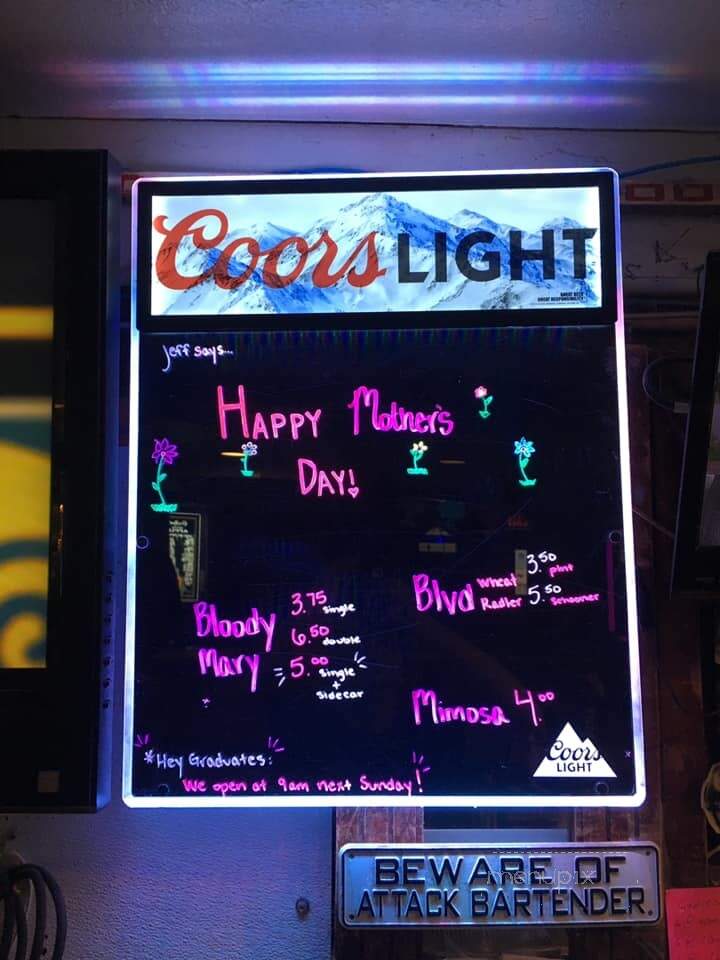 Coors LIGHT
GREAT BEER
GREAT RESPONSIBILITY
Jeff says...
HAPPY Mother's
DAY!
Bloody
Mary
3.75 single
6.50 double
5.00 single
+
sidecar
Blvd
Wheat
Radler
3.50 pint
5.50 schooner
Mimosa 4.00
Coors
LIGHT
*Hey Graduates:
We open at 9am next Sunday!
BEWARE OF
ATTACK BARTENDER
menupix